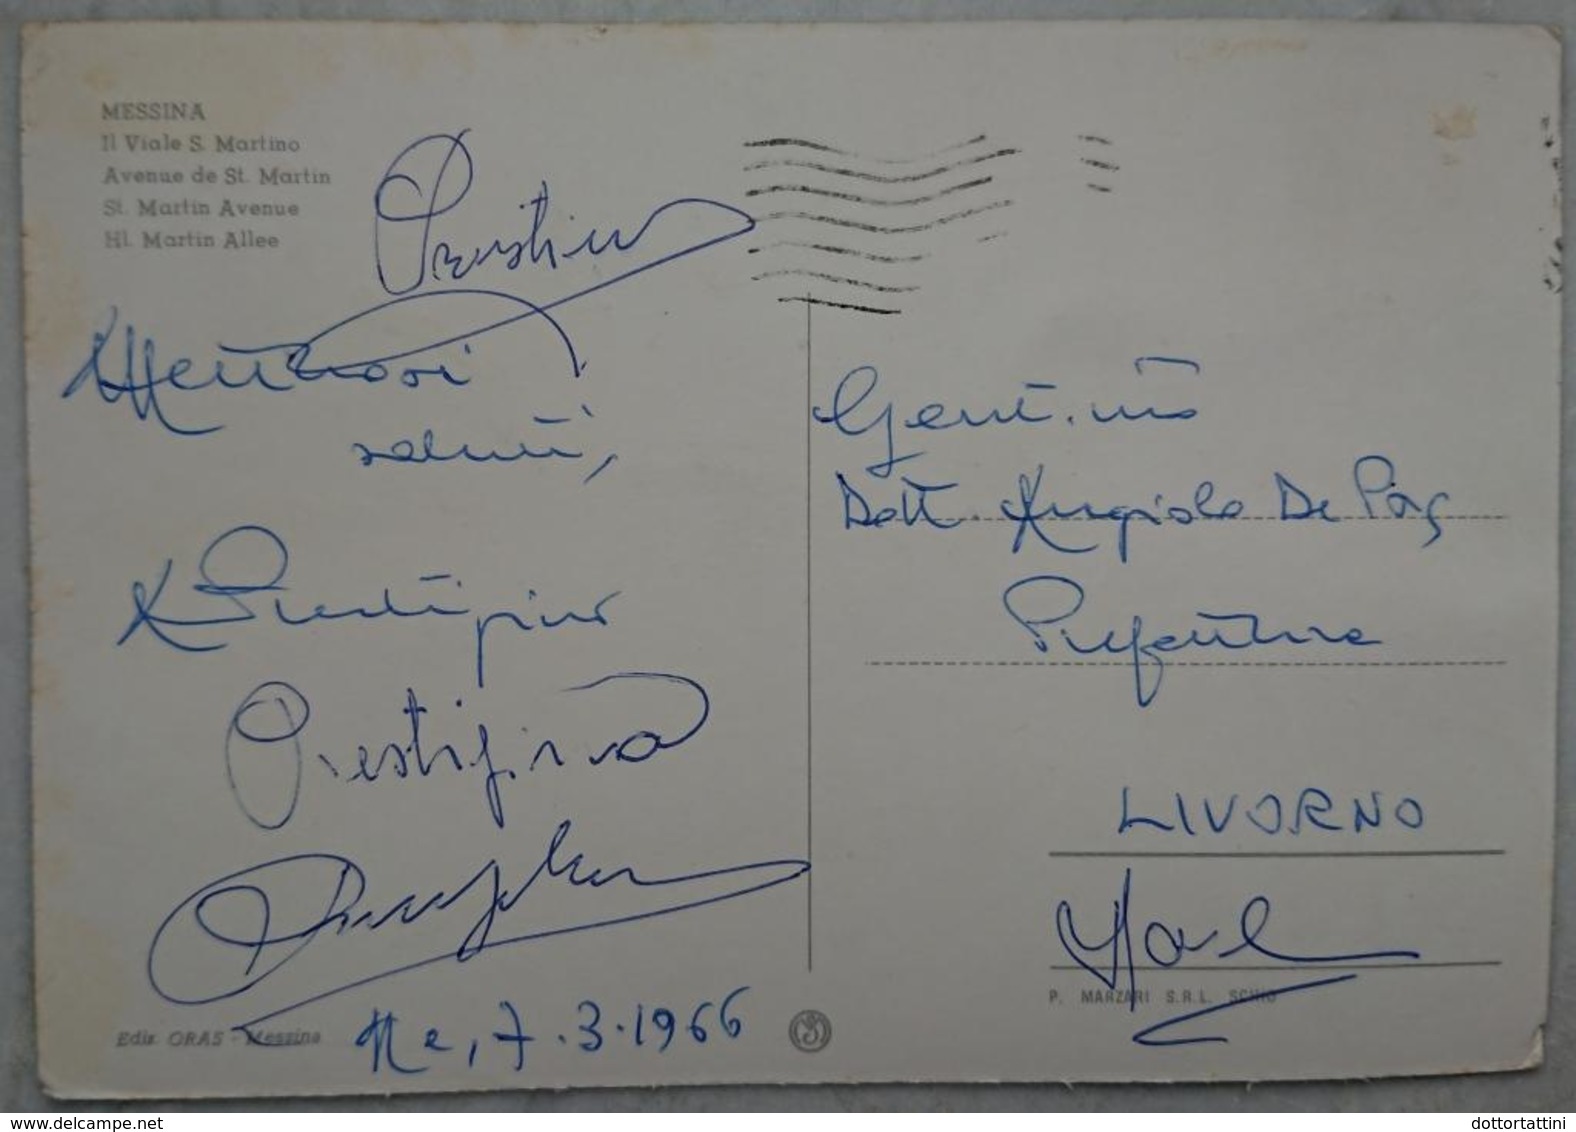 MESSINA
Il Viale S. Martino
Avenue de St. Martin
St. Martin Avenue
Hl. Martin Allee
Affettuosi
saluti,
Prestipino
Prestipino
Me, 7.3.1966
Ediz. ORAS - Messina
Gent.mo
Dott. Angiolo De Pas
Prefettura
LIVORNO
P. MARZARI S.R.L. SCHIO
dottortattini